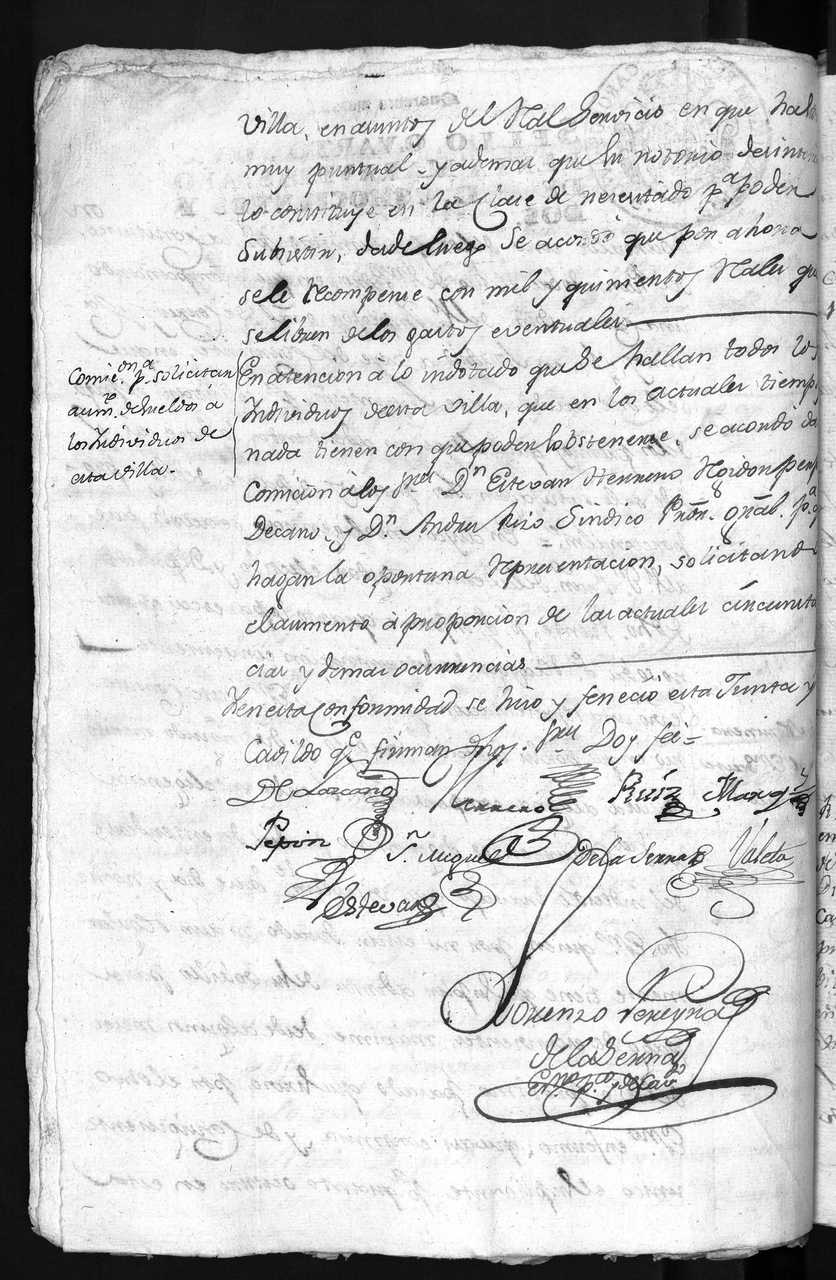 villa, en asuntos del Rl. Servicio en que ha
muy puntual, y ademas que su notorio desinte
lo constituye en la Clase de necesitado pa. poder
subsistir, desde luego se acordó que por ahora
se le recompense con mil y quinientos Reales que
se libren de los gastos eventuales.
Comis.on pa. solicitar
aum.to de sueldos á
los Individuos de
esta villa.
En atencion á lo indotado que se hallan todos los
Individuos de esta villa, que en los actuales tiempos
nada tienen con que poderlo obstenerse, se acordó da
Comicion á los Sres. Dn. Estevan Herrero Rexidor perp
Decano, y Dn. Andres Rizo Sindico Pror. gral. pa. q
hagan la oportuna representacion, solicitando
el aumento á proporcion de las actuales circunsta
cias y demas ocurrencias
Y en esta Conformidad se hizo y fenecio esta Junta y
Cavildo qe. firman dhos. Sres. Doy fee=
Dr. Lozano
Herrero
Ruiz
Marqz
Pepin
Sn. Miguel
De la Serna
Valeta
Estevan
Lorenzo Pereyra
de la Serna
Esno. pco. y de Cavo.